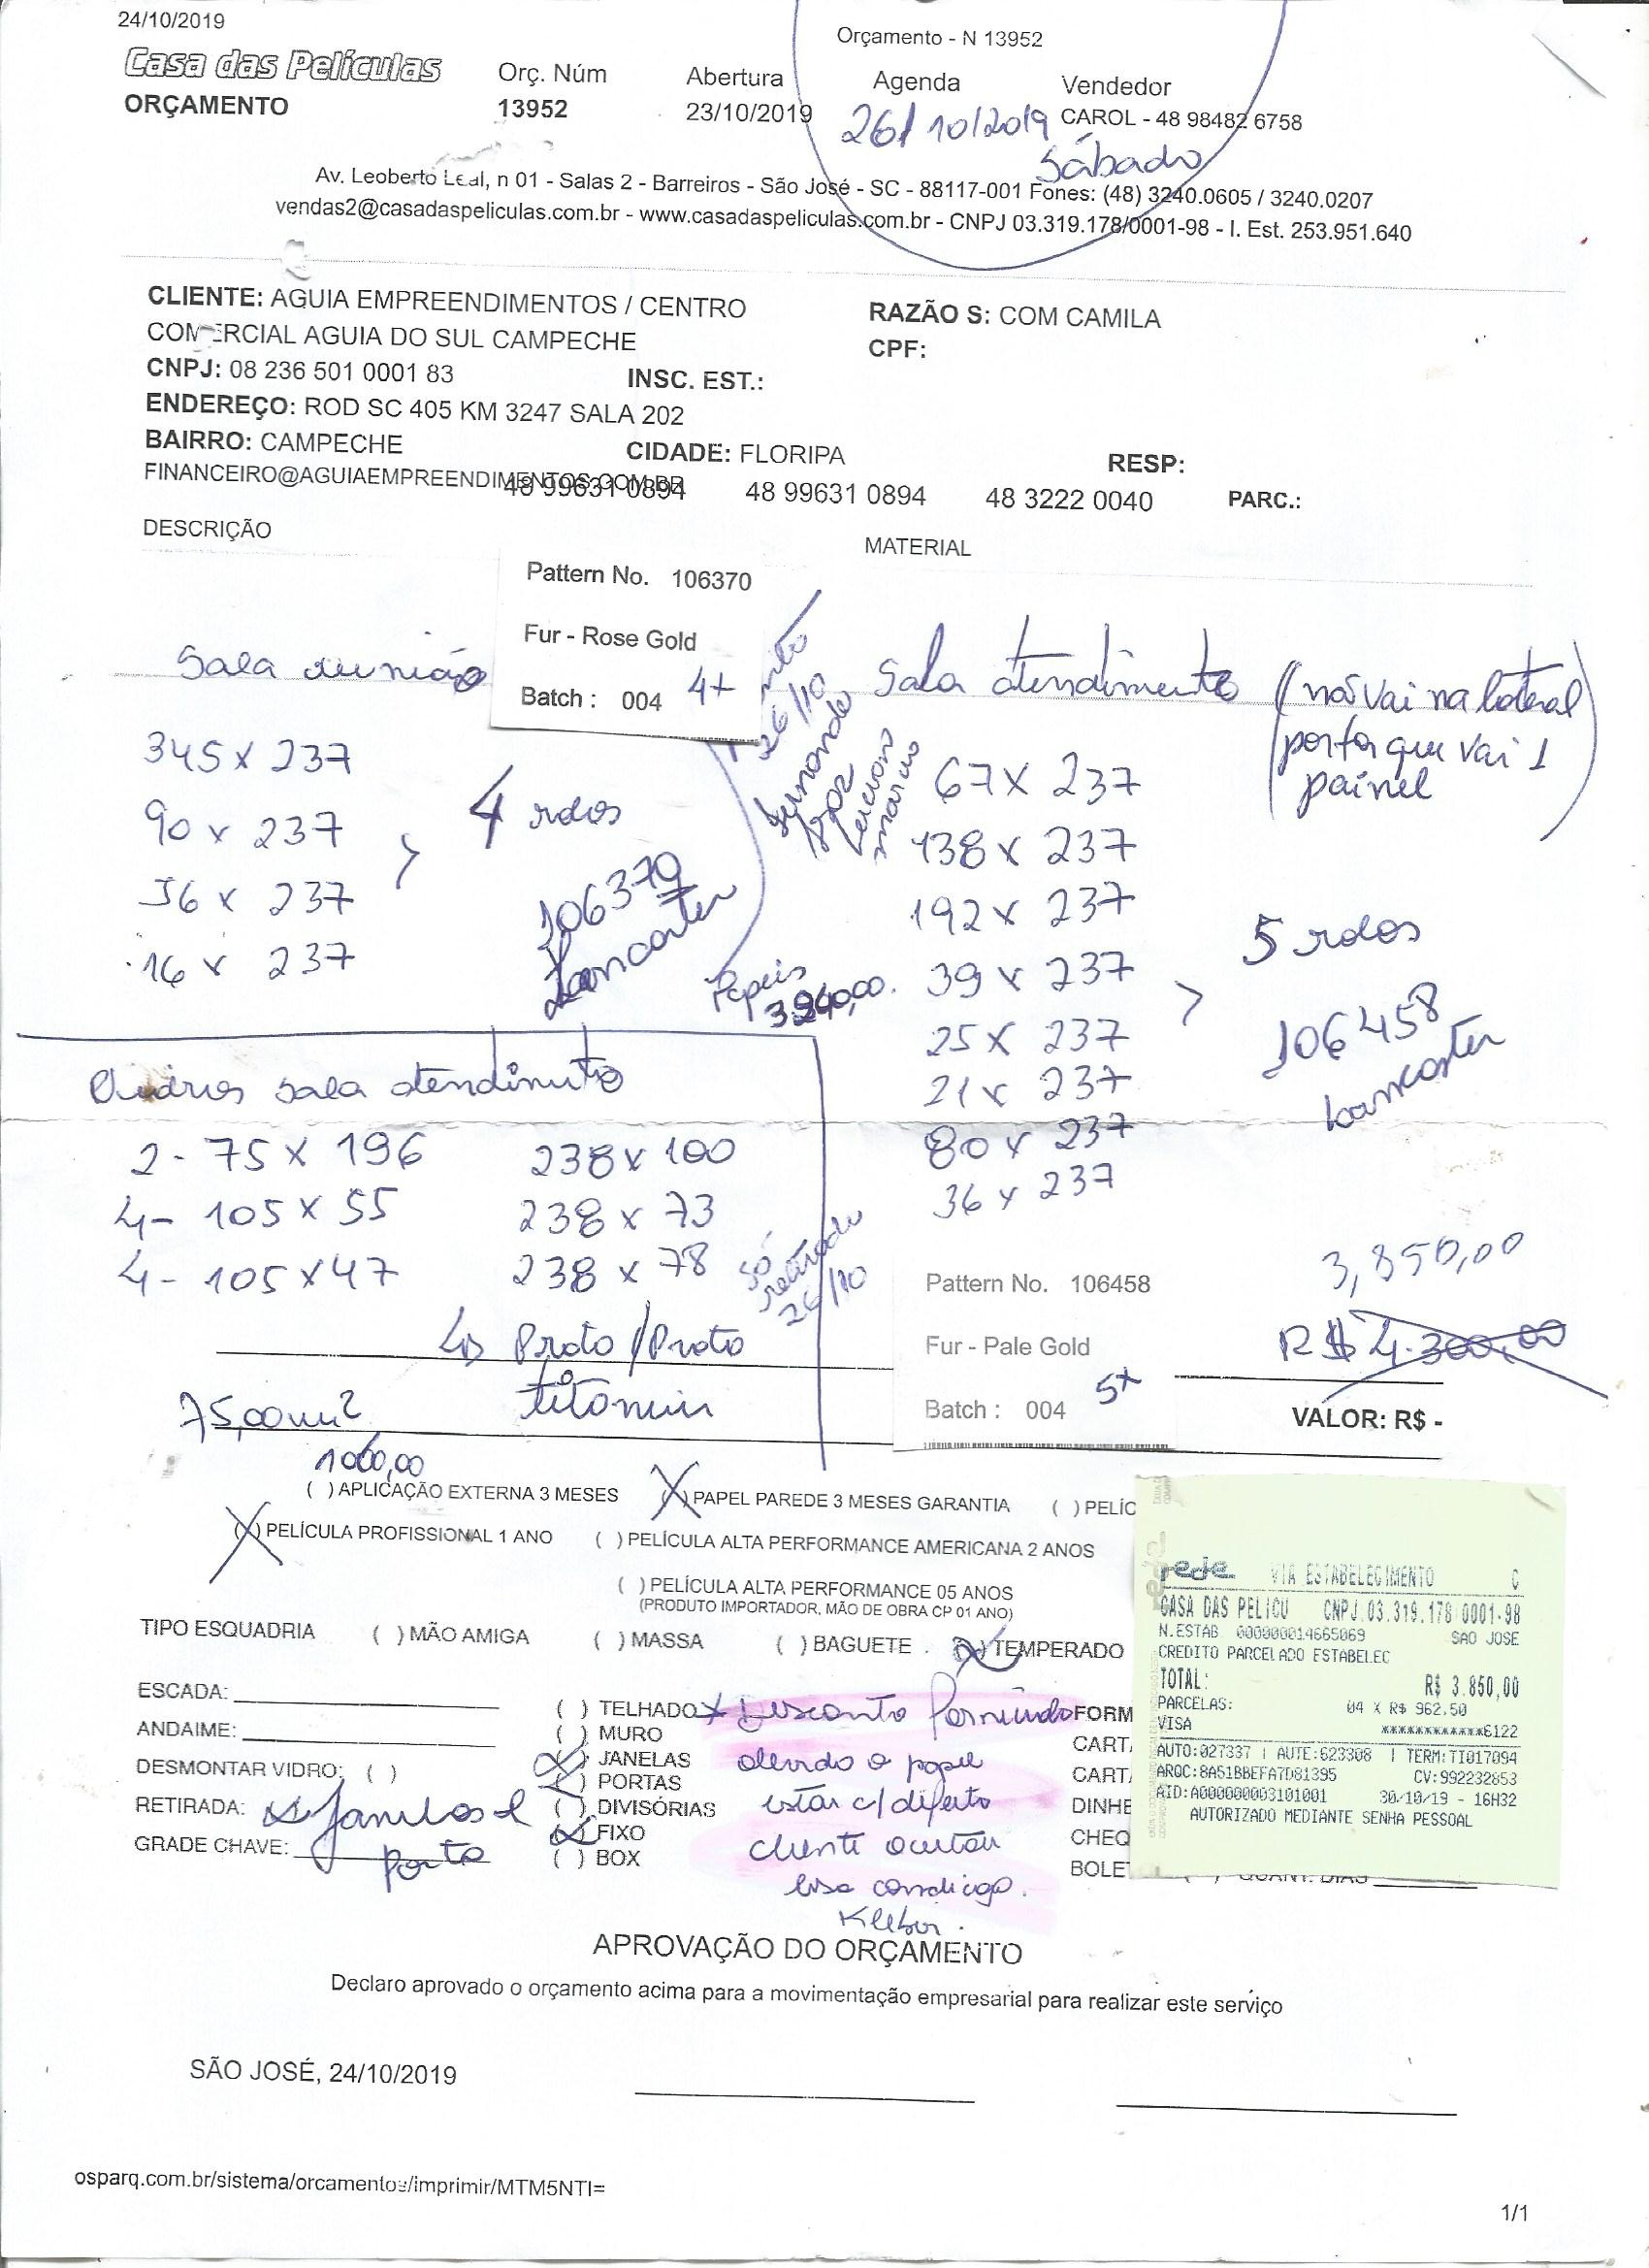 24/10/2019
Orçamento - N 13952
Casa das Películas
ORÇAMENTO
Orç. Núm
13952
Abertura
23/10/2019
Agenda
26/10/2019
Sábado
Vendedor
CAROL - 48 98482 6758
Av. Leoberto Leal, n 01 - Salas 2 - Barreiros - São José - SC - 88117-001 Fones: (48) 3240.0605 / 3240.0207
vendas2@casadaspeliculas.com.br - www.casadaspeliculas.com.br - CNPJ 03.319.178/0001-98 - I. Est. 253.951.640
CLIENTE: AGUIA EMPREENDIMENTOS / CENTRO
COMERCIAL AGUIA DO SUL CAMPECHE
RAZÃO S: COM CAMILA
CPF:
CNPJ: 08 236 501 0001 83
INSC. EST.:
ENDEREÇO: ROD SC 405 KM 3247 SALA 202
BAIRRO: CAMPECHE
CIDADE: FLORIPA
RESP:
FINANCEIRO@AGUIAEMPREENDIMENTOS.COM.BR
48 99631 0894
48 99631 0894
48 3222 0040
PARC.:
DESCRIÇÃO
MATERIAL
Pattern No. 106370
Fur - Rose Gold
Batch : 004 4+
26/10
Fernando
Sala reunião
345 x 237
90 x 237
36 x 237
16 x 237
4 rolos
106370
Lancaster
Papeis
Sala atendimento (não vai na lateral
porta que vai 1
painel
67 x 237
138 x 237
192 x 237
39 x 237
25 x 237
21 x 237
80 x 237
36 x 237
5 rolos
106458
Lancaster
Vidros sala atendimento
2 - 75 x 196
4 - 105 x 55
4 - 105 x 47
238 x 100
238 x 73
238 x 78
só
retirado
26/10
Prata/Preto
titanium
75,00 m2
1000,00
Pattern No. 106458
Fur - Pale Gold
Batch : 004 5+
3,850,00
R$ 4.300,00
VALOR: R$ -
( ) APLICAÇÃO EXTERNA 3 MESES
(X) PAPEL PAREDE 3 MESES GARANTIA
( ) PELÍC
(X) PELÍCULA PROFISSIONAL 1 ANO
( ) PELÍCULA ALTA PERFORMANCE AMERICANA 2 ANOS
( ) PELÍCULA ALTA PERFORMANCE 05 ANOS
(PRODUTO IMPORTADOR, MÃO DE OBRA CP 01 ANO)
TIPO ESQUADRIA
( ) MÃO AMIGA
( ) MASSA
( ) BAGUETE
(X) TEMPERADO
ESCADA:
ANDAIME:
DESMONTAR VIDRO: ( )
RETIRADA: janelas e
porta
GRADE CHAVE:
( ) TELHADO
( ) MURO
(X) JANELAS
(X) PORTAS
( ) DIVISÓRIAS
(X) FIXO
( ) BOX
Desconto
devido o papel
estar c/ difeito
cliente aceitou
essa condição.
Kleber.
FORM
CART
CART
DINHE
CHEQ
BOLE
QUANT. DIAS
rede VIA ESTABELECIMENTO C
CASA DAS PELICU CNPJ.03.319.178 0001-98
N.ESTAB 000000014665069 SAO JOSE
CREDITO PARCELADO ESTABELEC
TOTAL: R$ 3.850,00
PARCELAS: 04 X R$ 962,50
VISA ************6122
AUTO:027337 | AUTE:623308 | TERM:TI017094
ARQC:8A51BBEFA7D81395 CV:992232853
AID:A000000003101001 30/10/19 - 16H32
AUTORIZADO MEDIANTE SENHA PESSOAL
APROVAÇÃO DO ORÇAMENTO
Declaro aprovado o orçamento acima para a movimentação empresarial para realizar este serviço
SÃO JOSÉ, 24/10/2019
osparq.com.br/sistema/orcamentos/imprimir/MTM5NTI=
1/1